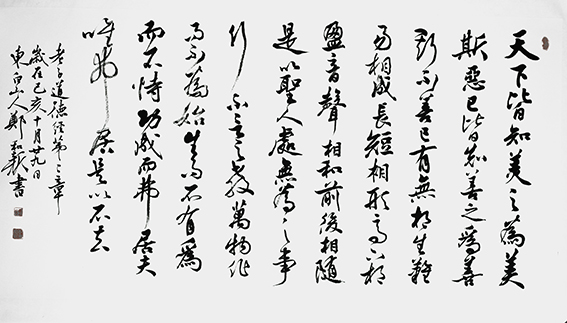 天下皆知美之為美
斯惡已皆知善之為善
斯不善已有無相生難
易相成長短相形高下相
盈音聲相和前後相隨
是以聖人處無為之事
行不言之教萬物作
而不為始生而不有為
而不恃功成而弗居夫
唯弗居是以不去
老子道德經第二章
歲在己亥十月廿九日
東白山人鄭和書